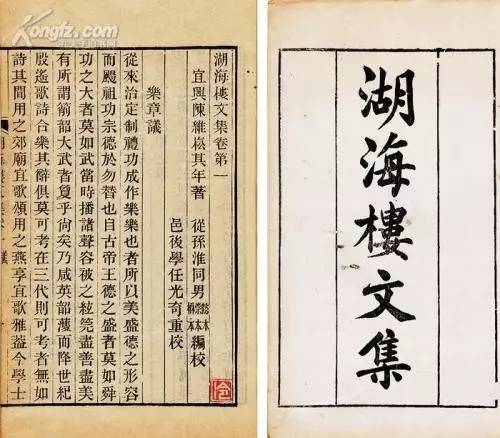 Kongfz.com
湖海樓文集
湖海樓文集卷第一
宜興陳維崧其年著 從孫淮同男 編校
邑後學任光奇重校
樂章議
從來治定制禮功成作樂樂也者所以美盛德之形容
而颺祖功宗德於勿替也自古帝王德之盛者莫如舜
功之大者莫如武當時播諸聲容被之絃筦盡善盡美
有所謂箾韶大武者敻乎尚矣乃咸英部頀而降世紀
殷遙歌詩合樂其辭俱莫可考在三代則可考者無如
詩其間用之郊廟宜歌頌用之燕享宜歌雅蓋今學士